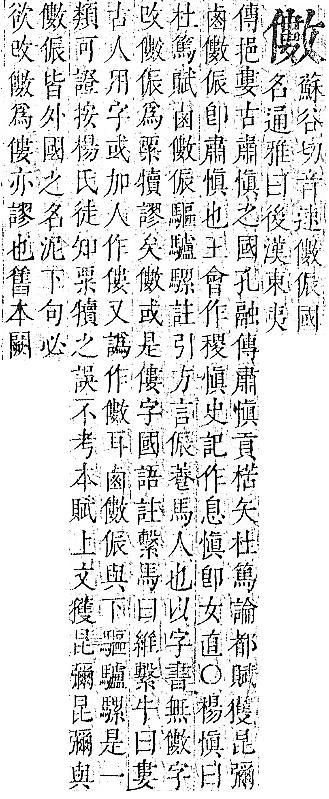 㒔
蘇谷切音速㒔侲國
名通雅曰後漢東夷
傳挹婁古肅慎之國孔融傳肅慎貢楛矢杜篤論都賦獲昆彌
鹵㒔侲卽肅慎也王會作稷慎史記作息慎卽女直○楊慎曰
杜篤賦鹵㒔侲驅驢騾註引方言侲養馬人也以字書無㒔字
改㒔侲爲粟犢謬矣㒔或是僂字國語註繫馬曰維繫牛曰婁
古人用字或加人作僂又譌作㒔耳鹵㒔侲與下驅驢騾是一
類可證按楊氏徒知粟犢之誤不考本賦上文獲昆彌昆彌與
㒔侲皆外國之名泥下句必
欲改㒔爲僂亦謬也舊本闕